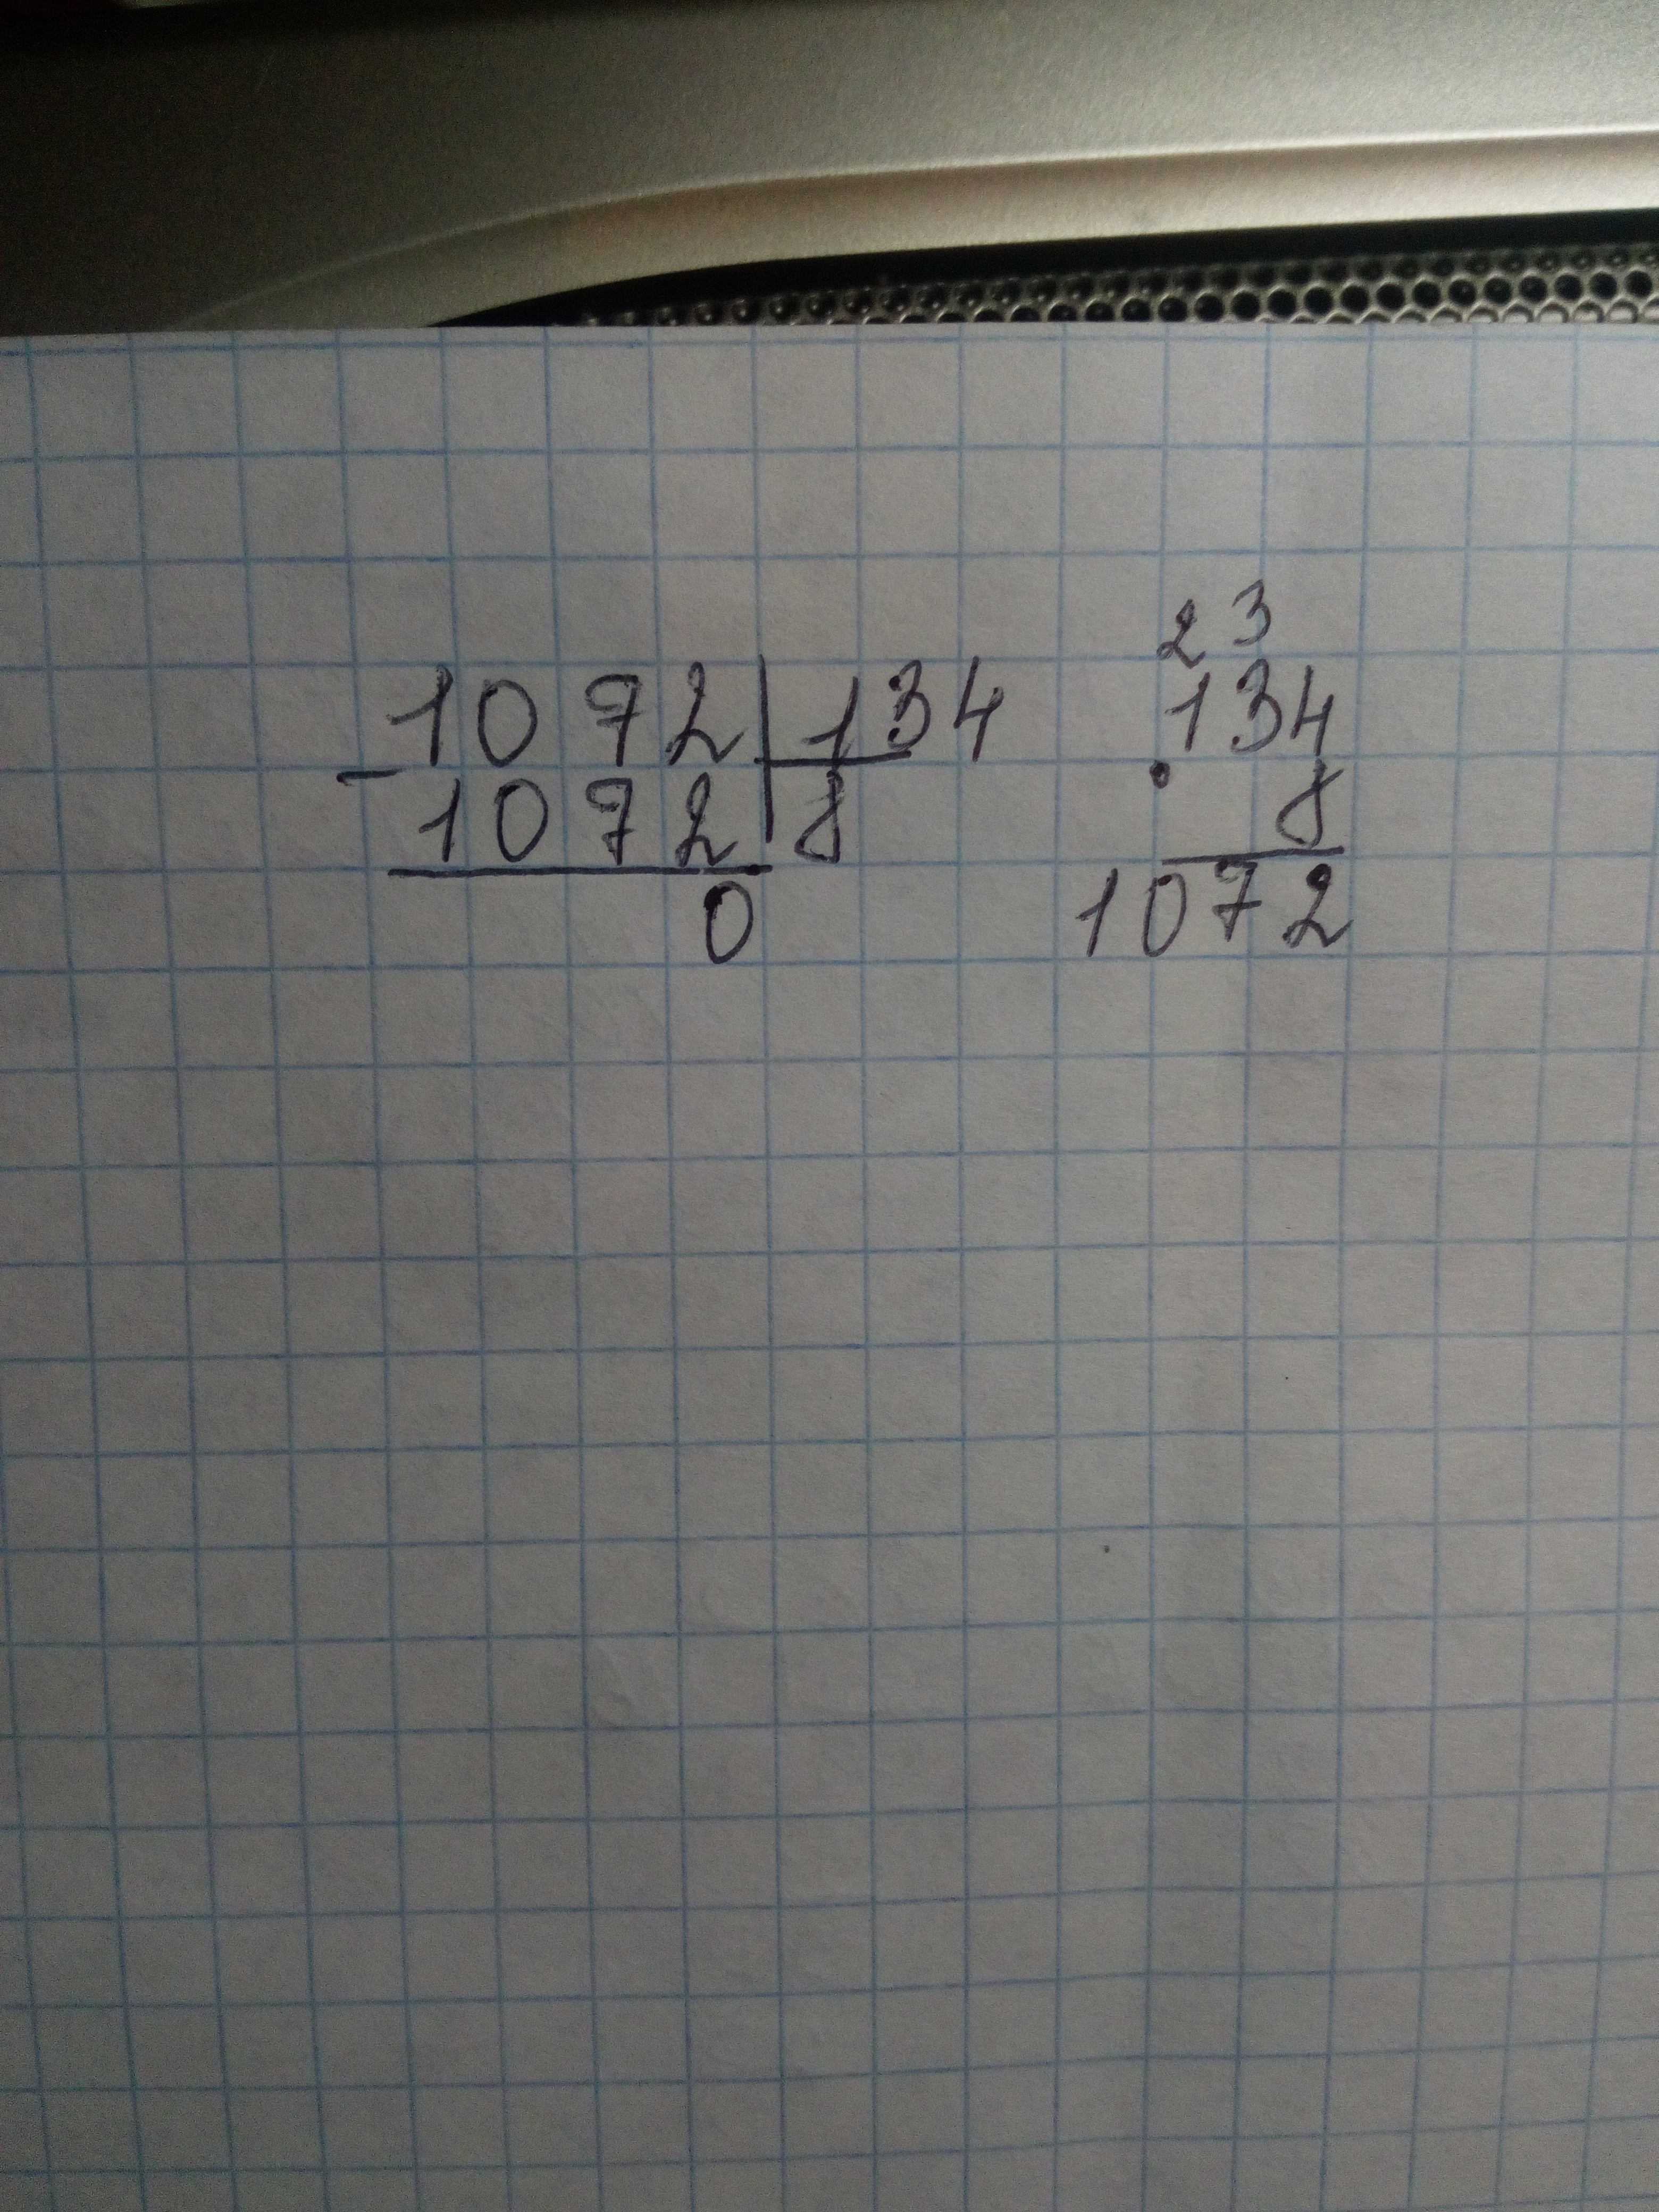 1072|134
-1072|8
0
23
134
· 8
1072